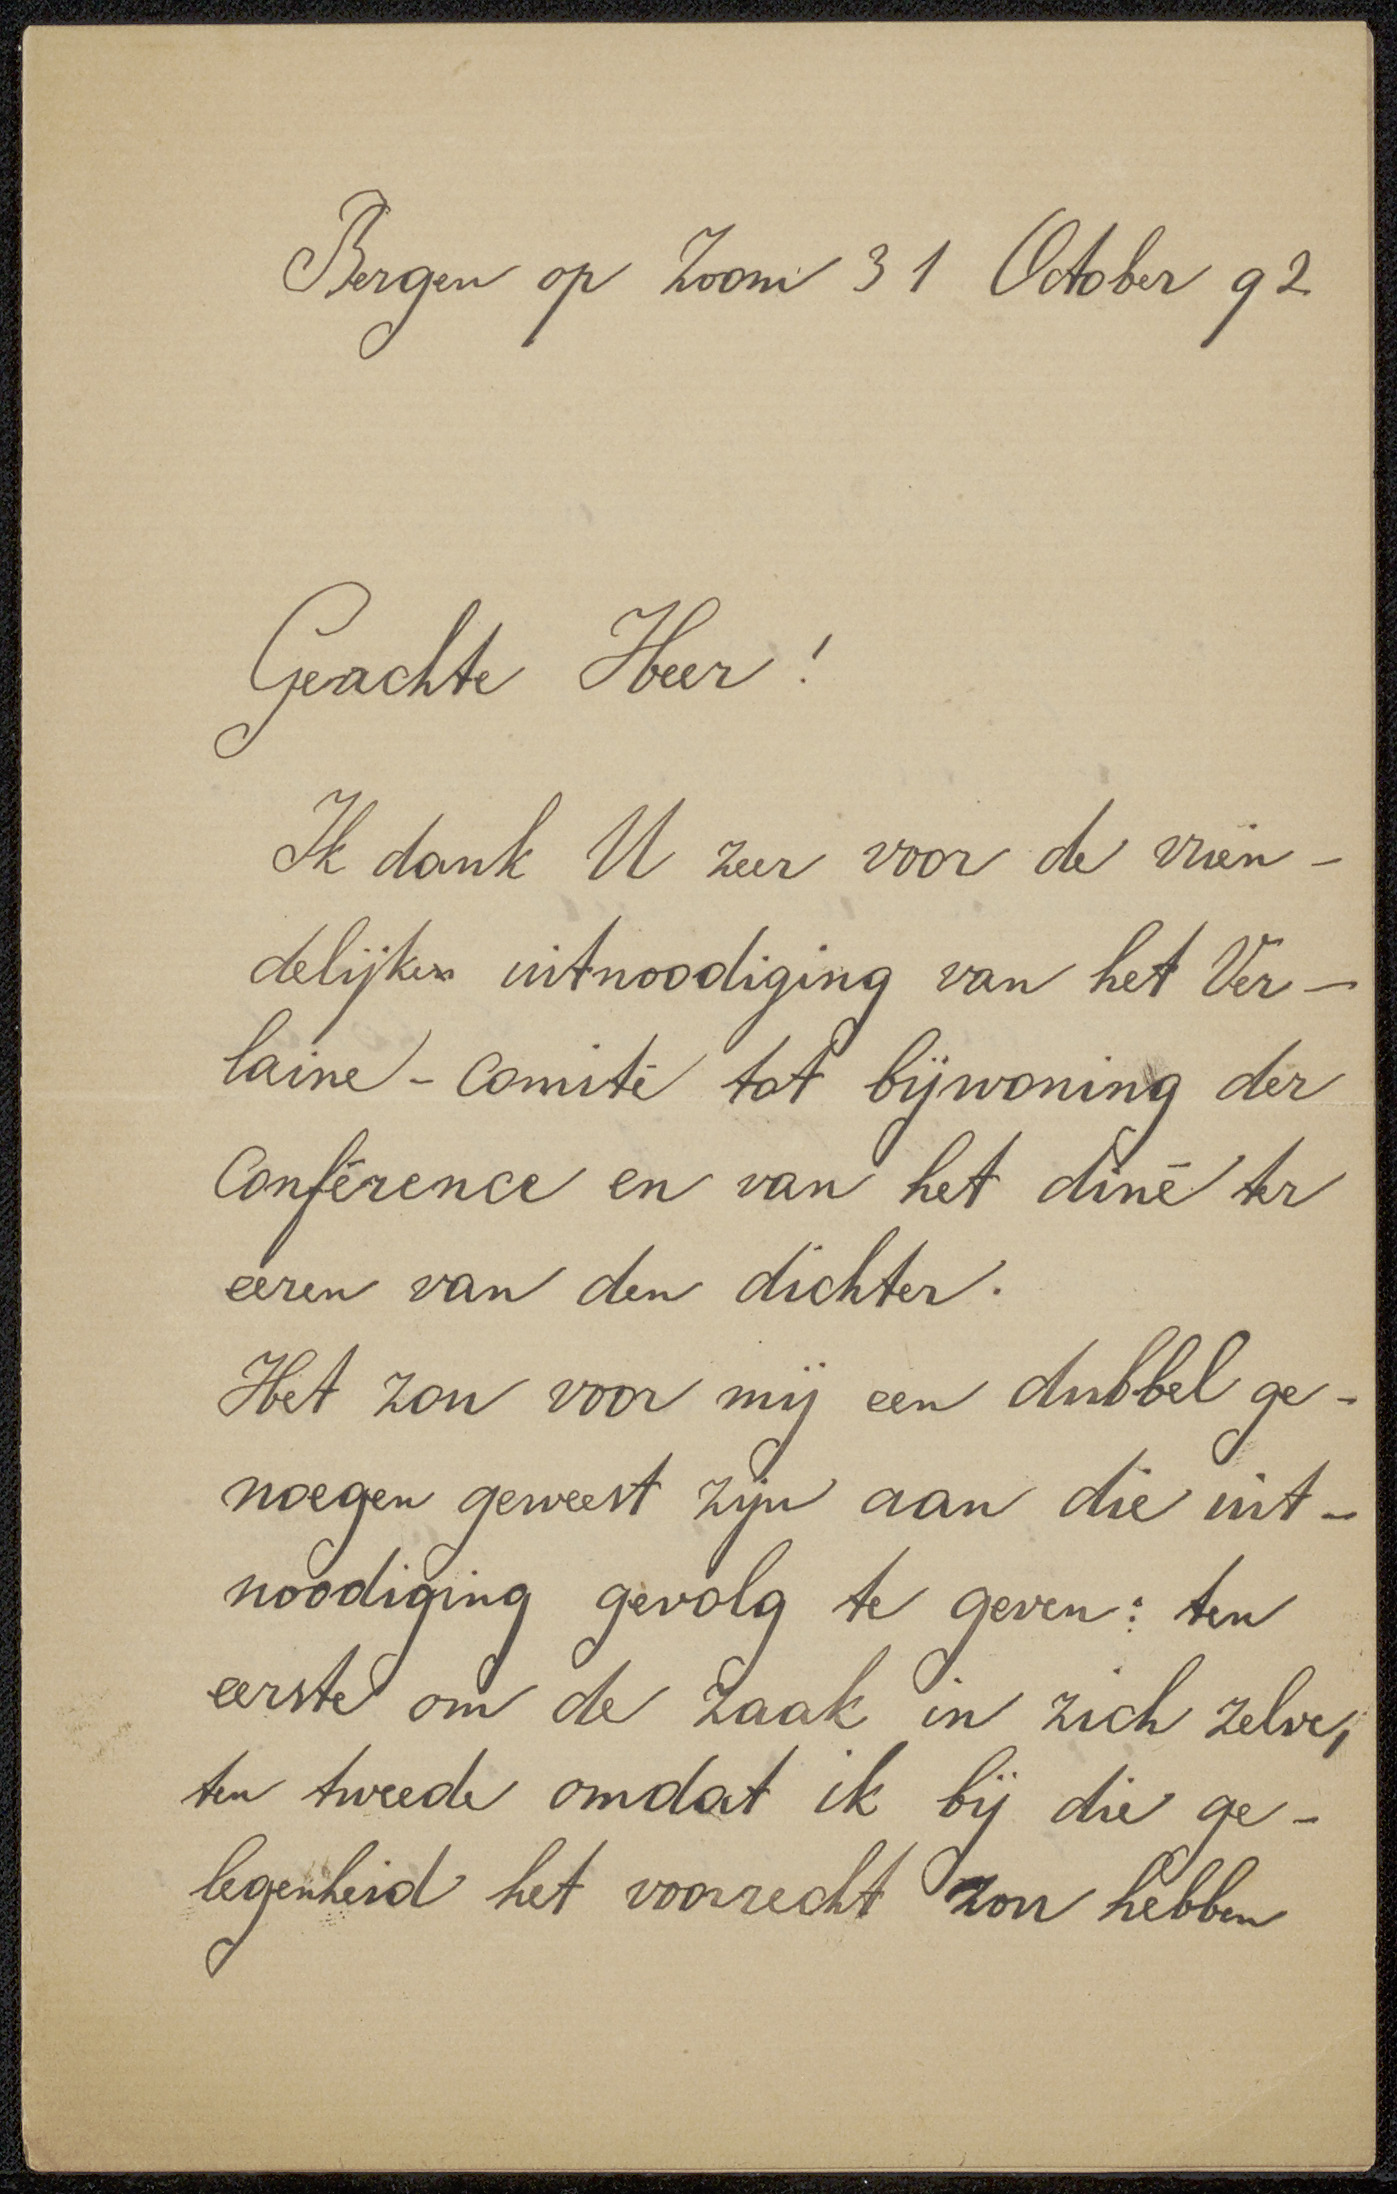 Bergen op Zoom 31 October 92
Geachte Heer!
Ik dank U zeer voor de vrien-
delijken uitnoodiging van het Ver-
laine-Comité tot bijwoning der
Conférence en van het diné ter
eeren van den dichter.
Het zou voor mij een dubbel ge-
noegen geweest zijn aan die uit-
noodiging gevolg te geven: ten
eerste om de zaak in zich zelve,
ten tweede omdat ik bij die ge-
legenheid het voorrecht zou hebben